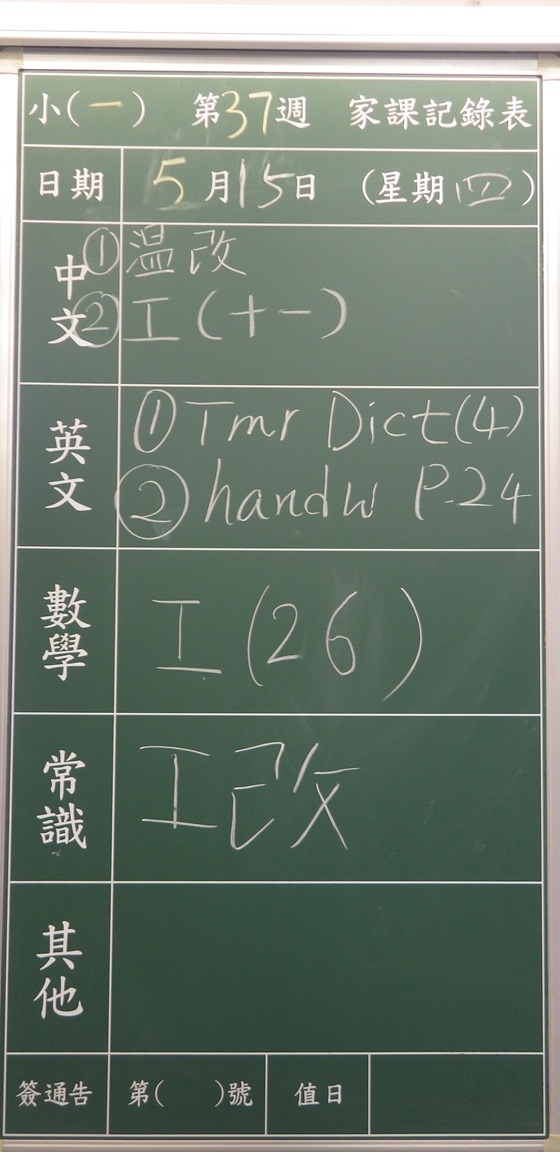 小(一) 第37週 家課記錄表
日期 5月15日 (星期四)
中文 ①温改
②工(十一)
英文 ①Tmr Dict(4)
②handw P.24
數學 工(26)
常識 工改
其他
簽通告 第( )號 值日